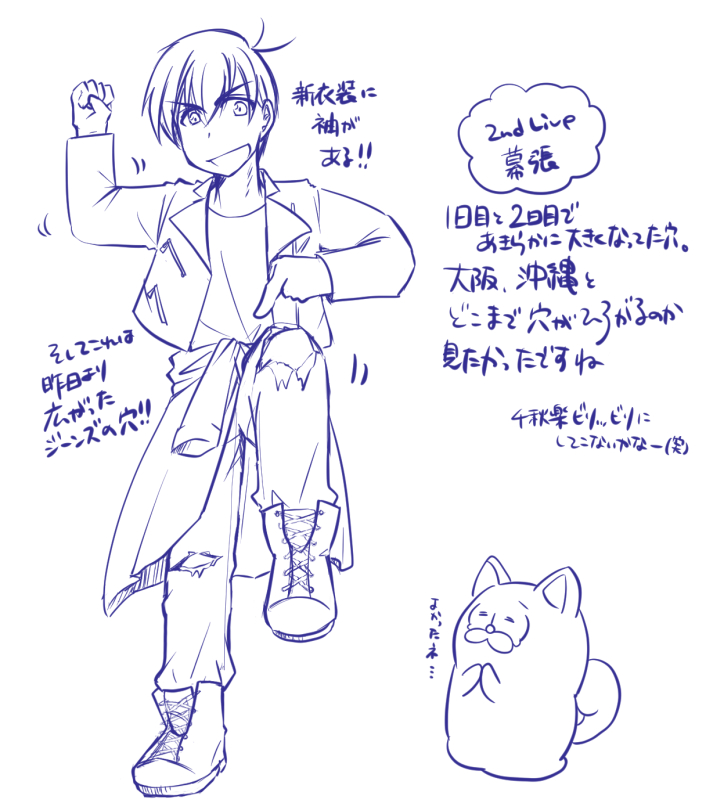 新衣装に
袖が
ある!!
2nd Live
幕張
1日目と2日目で
あきらかに大きくなってた穴。
大阪、沖縄と
どこまで穴がひろがるのか
見たかったですね
千秋楽ビリッビリに
してこないかなー(笑)
そしてこれは
昨日より
広がった
ジーンズの穴!!
よかったネ…